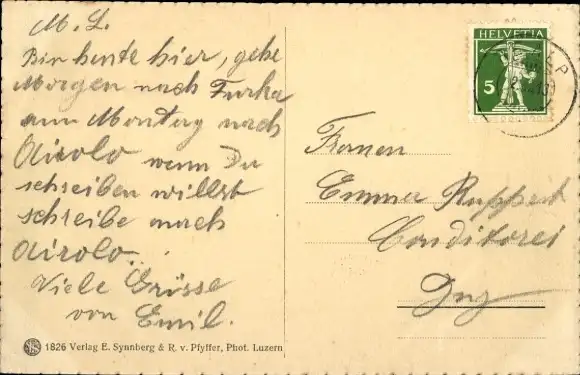 M. L.
Bin heute hier, gehe
Morgen nach Furka
am Montag nach
Airolo wenn Du
schreiben willst
schreibe nach
Airolo.
Viele Grüsse
von Emil.
HELVETIA
5
Frauen
Emma Ruppert
Conditorei
1826 Verlag E. Synnberg & R. v. Pfyffer, Phot. Luzern